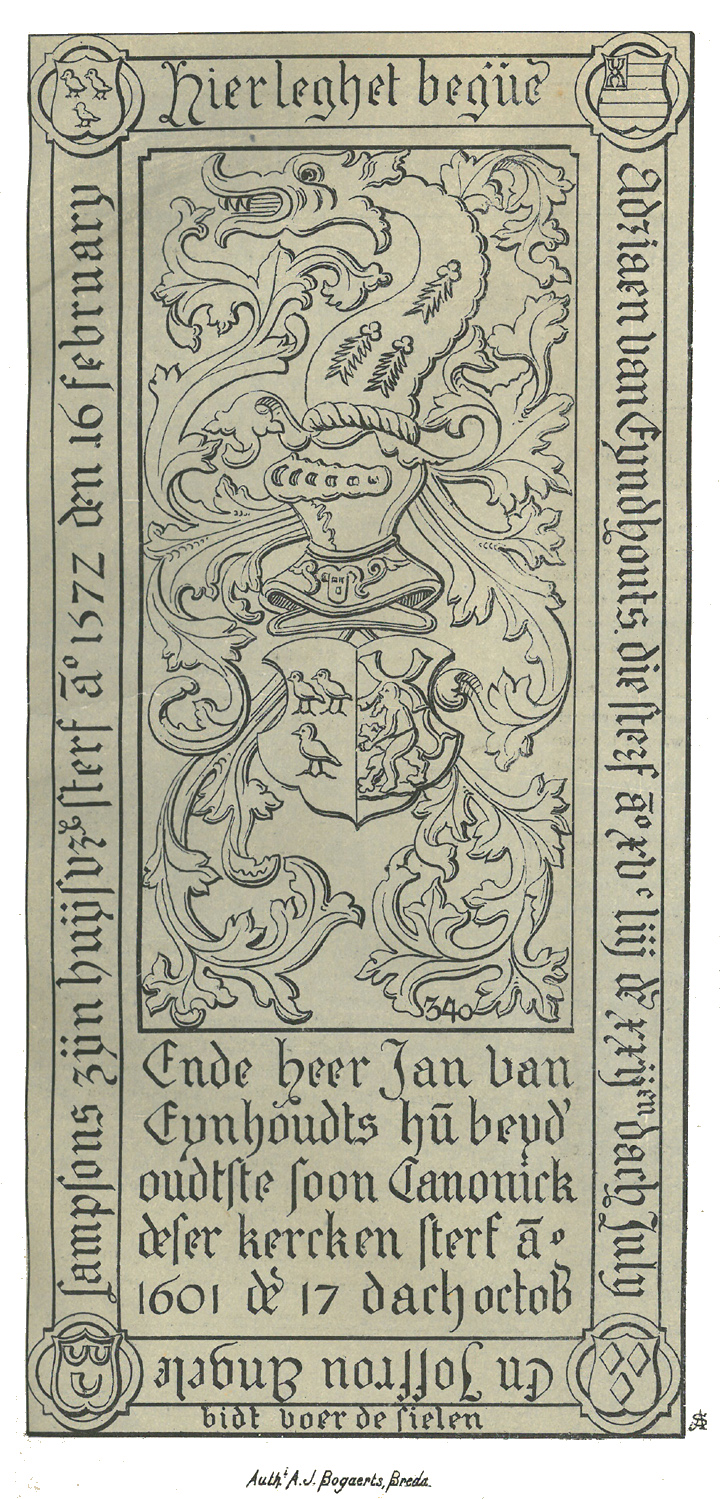 Hier leghet begüē
Adriaen van Eyndhouts. die sterf āo xvc liij & xxijen dach July
En Joffrou Angele
sampsons zÿn huÿsvz sterf āo 1572 den .16 february
340
Ende heer Jan van
Eynhoudts hū beyd'
oudtste soon Canonick
deser kercken sterf āo
1601 dē 17 dach octob
bidt voer de sielen
Auth.t A.J. Bogaerts, Breda.